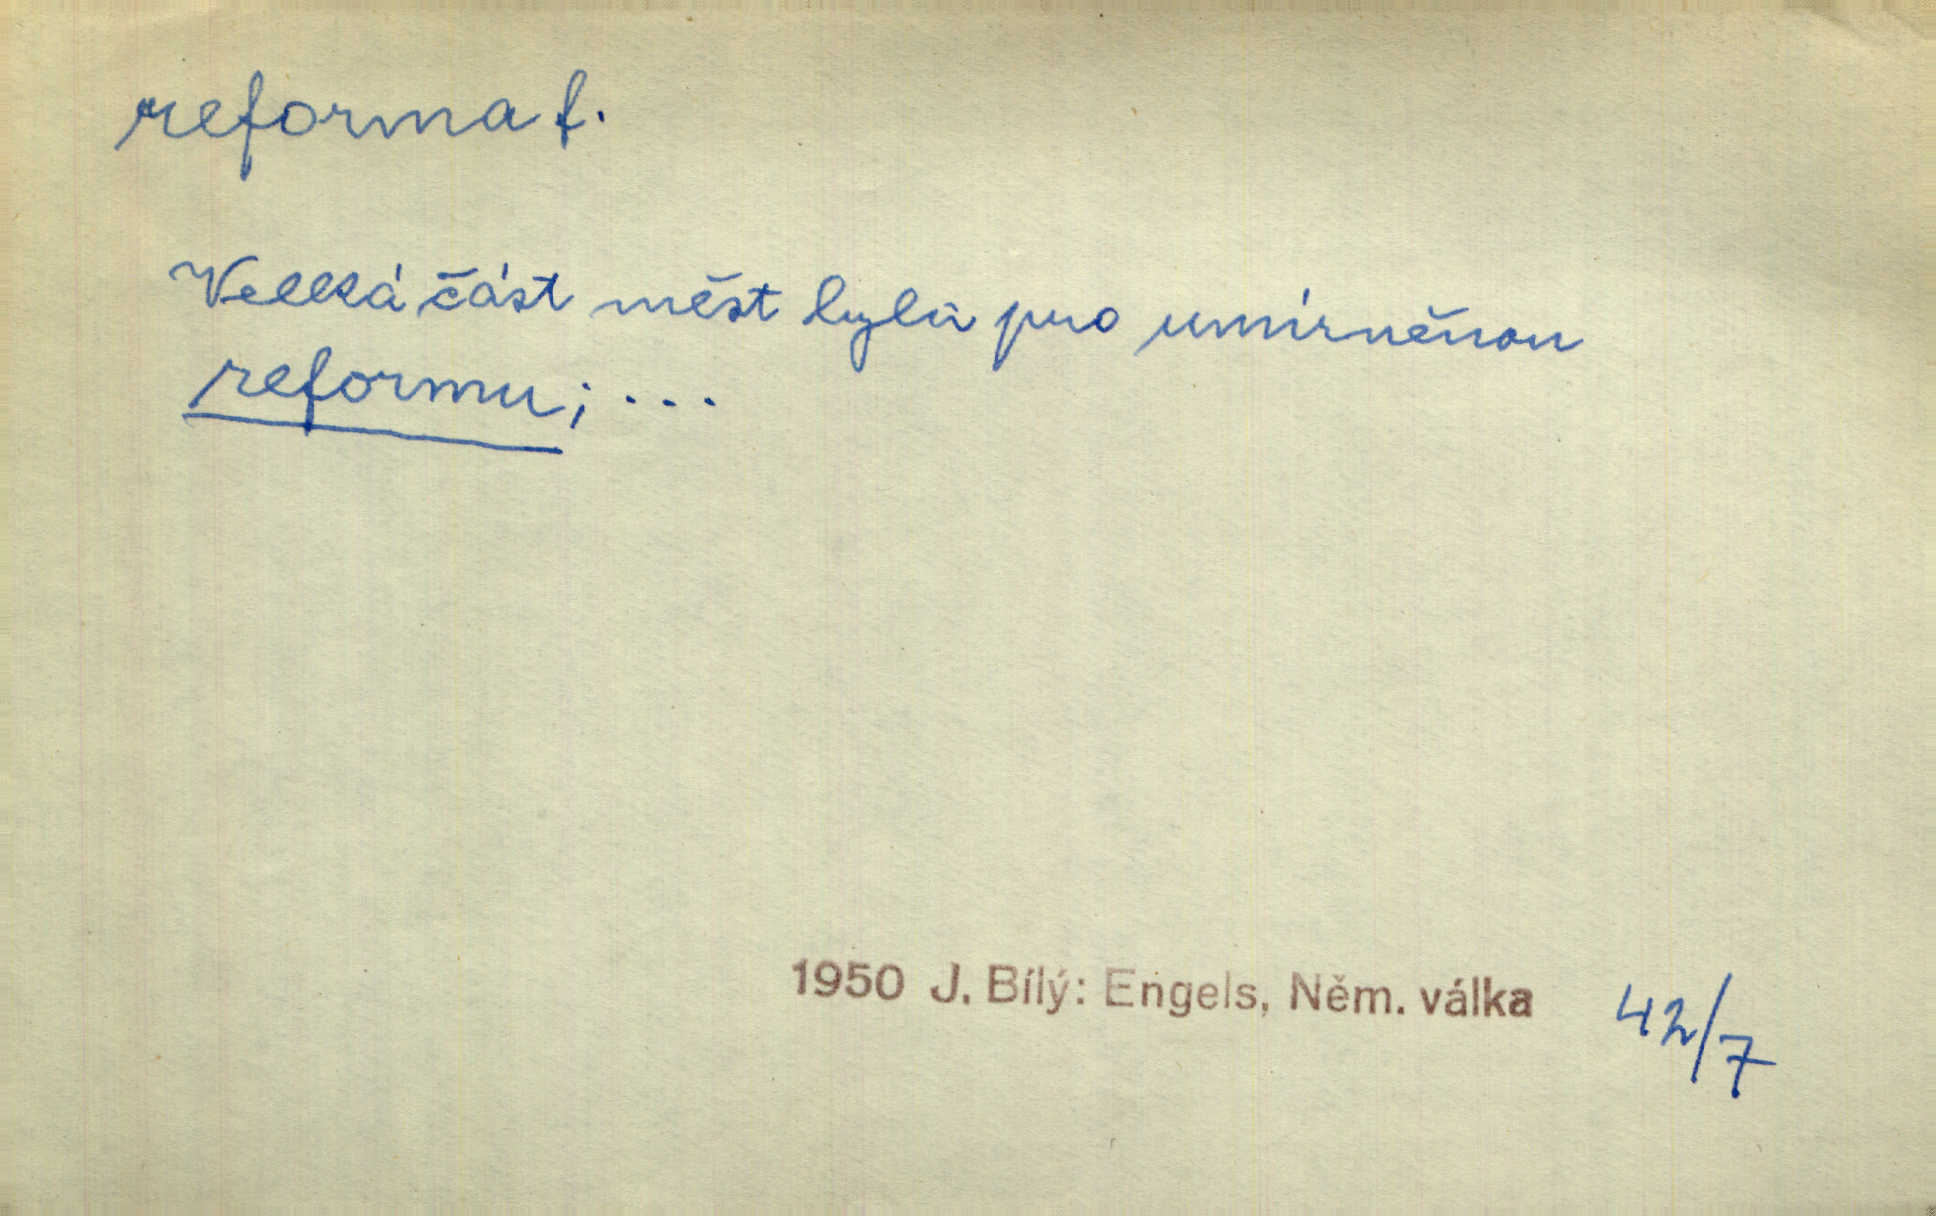 reforma f.
Velká část měst byla pro umírněnou
reformu; ...
1950 J. Bílý: Engels, Něm. válka 42/7